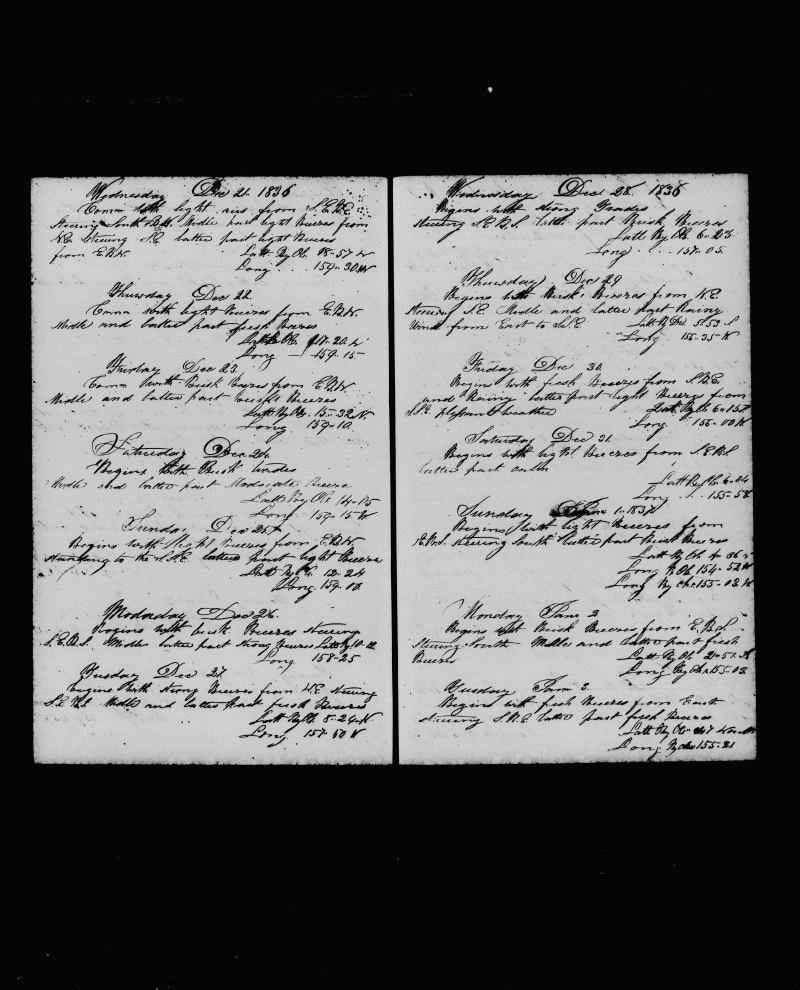 Wednesday Dec 21. 1836
Comm with light airs from S.E.B.E.
Steering South B.W. Midle part light Breezes from
N.E. Steering S.E. latter part light Breezes
from E.B.N. Latt By Ob. 18-57 N
Long . . . 159-30 W
Thursday Dec 22.
Comm with light Breezes from E.B.N.
Midle and latter part fresh breezes
Latt By Ob. 17-20 N
Long 159-15
Friday Dec 23.
Comm with Brisk Breezes from E.B.N.
Midle and latter part brisk Breezes
Latt By Ob. 15-32 N.
Long 159-10
Saturday Dec 24.
Begins with Brisk trades
Midle and latter part Moderate Breeze
Latt By Ob. 14-15
Long. 159-15 W
Sunday Dec 25th
Begins with light Breezes from E.B.N.
standing to the S.S.E. latter part light Breeze
Latt By Ob. 12-24
Long 159-
Monday Dec 26.
Begins with brisk Breezes Steering
S.E.B.S. Midle latter part Strong Breezes Latt By 10-12
Long 158-25
Tuesday Dec 27.
Begins with strong Breezes from N.E. steering
S.E.B.S Midle and latter part fresh Breezes
Latt By Ob. 8-24 N.
Long. 157-50 W
Wednesday Dec 28. 1836
Begins with strong Trades
steering S.E.B.S. latter part Brisk Breezes
Latt By Ob. 6-23
Long . . . 157-05.
Thursday Dec 29
Begins with Brisk Breezes from N.E.
Steering S.E. Midle and latter part Rainy
Winds from East to S.S.E. Latt By 5-53
Long 156-35 W
Friday Dec 30.
Begins with fresh Breezes from S.B.E.
and Rainy latter part light Breezes from
S.S.E. pleasant weather Latt By Ob. 6-15
Long. 156-00 W
Saturday Dec 31.
Begins with light Breezes from S.E.B.S
latter part calm
Latt By Ob. 6-04
Long . . 155-5
Sunday Jan 1. 1837
Begins with light Breezes from
E.B.S. steering South latter part Brisk Breezes
Latt By Ob 4-36
Long By Ob. 154-52 W
Long By Chr 155-02 W
Monday Jan 2
Begins with Brisk Breezes from E.B.S.
Steering South Midle and latter part fresh
Breezes Latt By Ob. 2-51
Long By Chr 155-03
Tuesday Jan 3.
Begins with fresh Breezes from East
steering S.B.E. latter part fresh Breezes
Latt By Ob 47 North
Long By chr 155-21